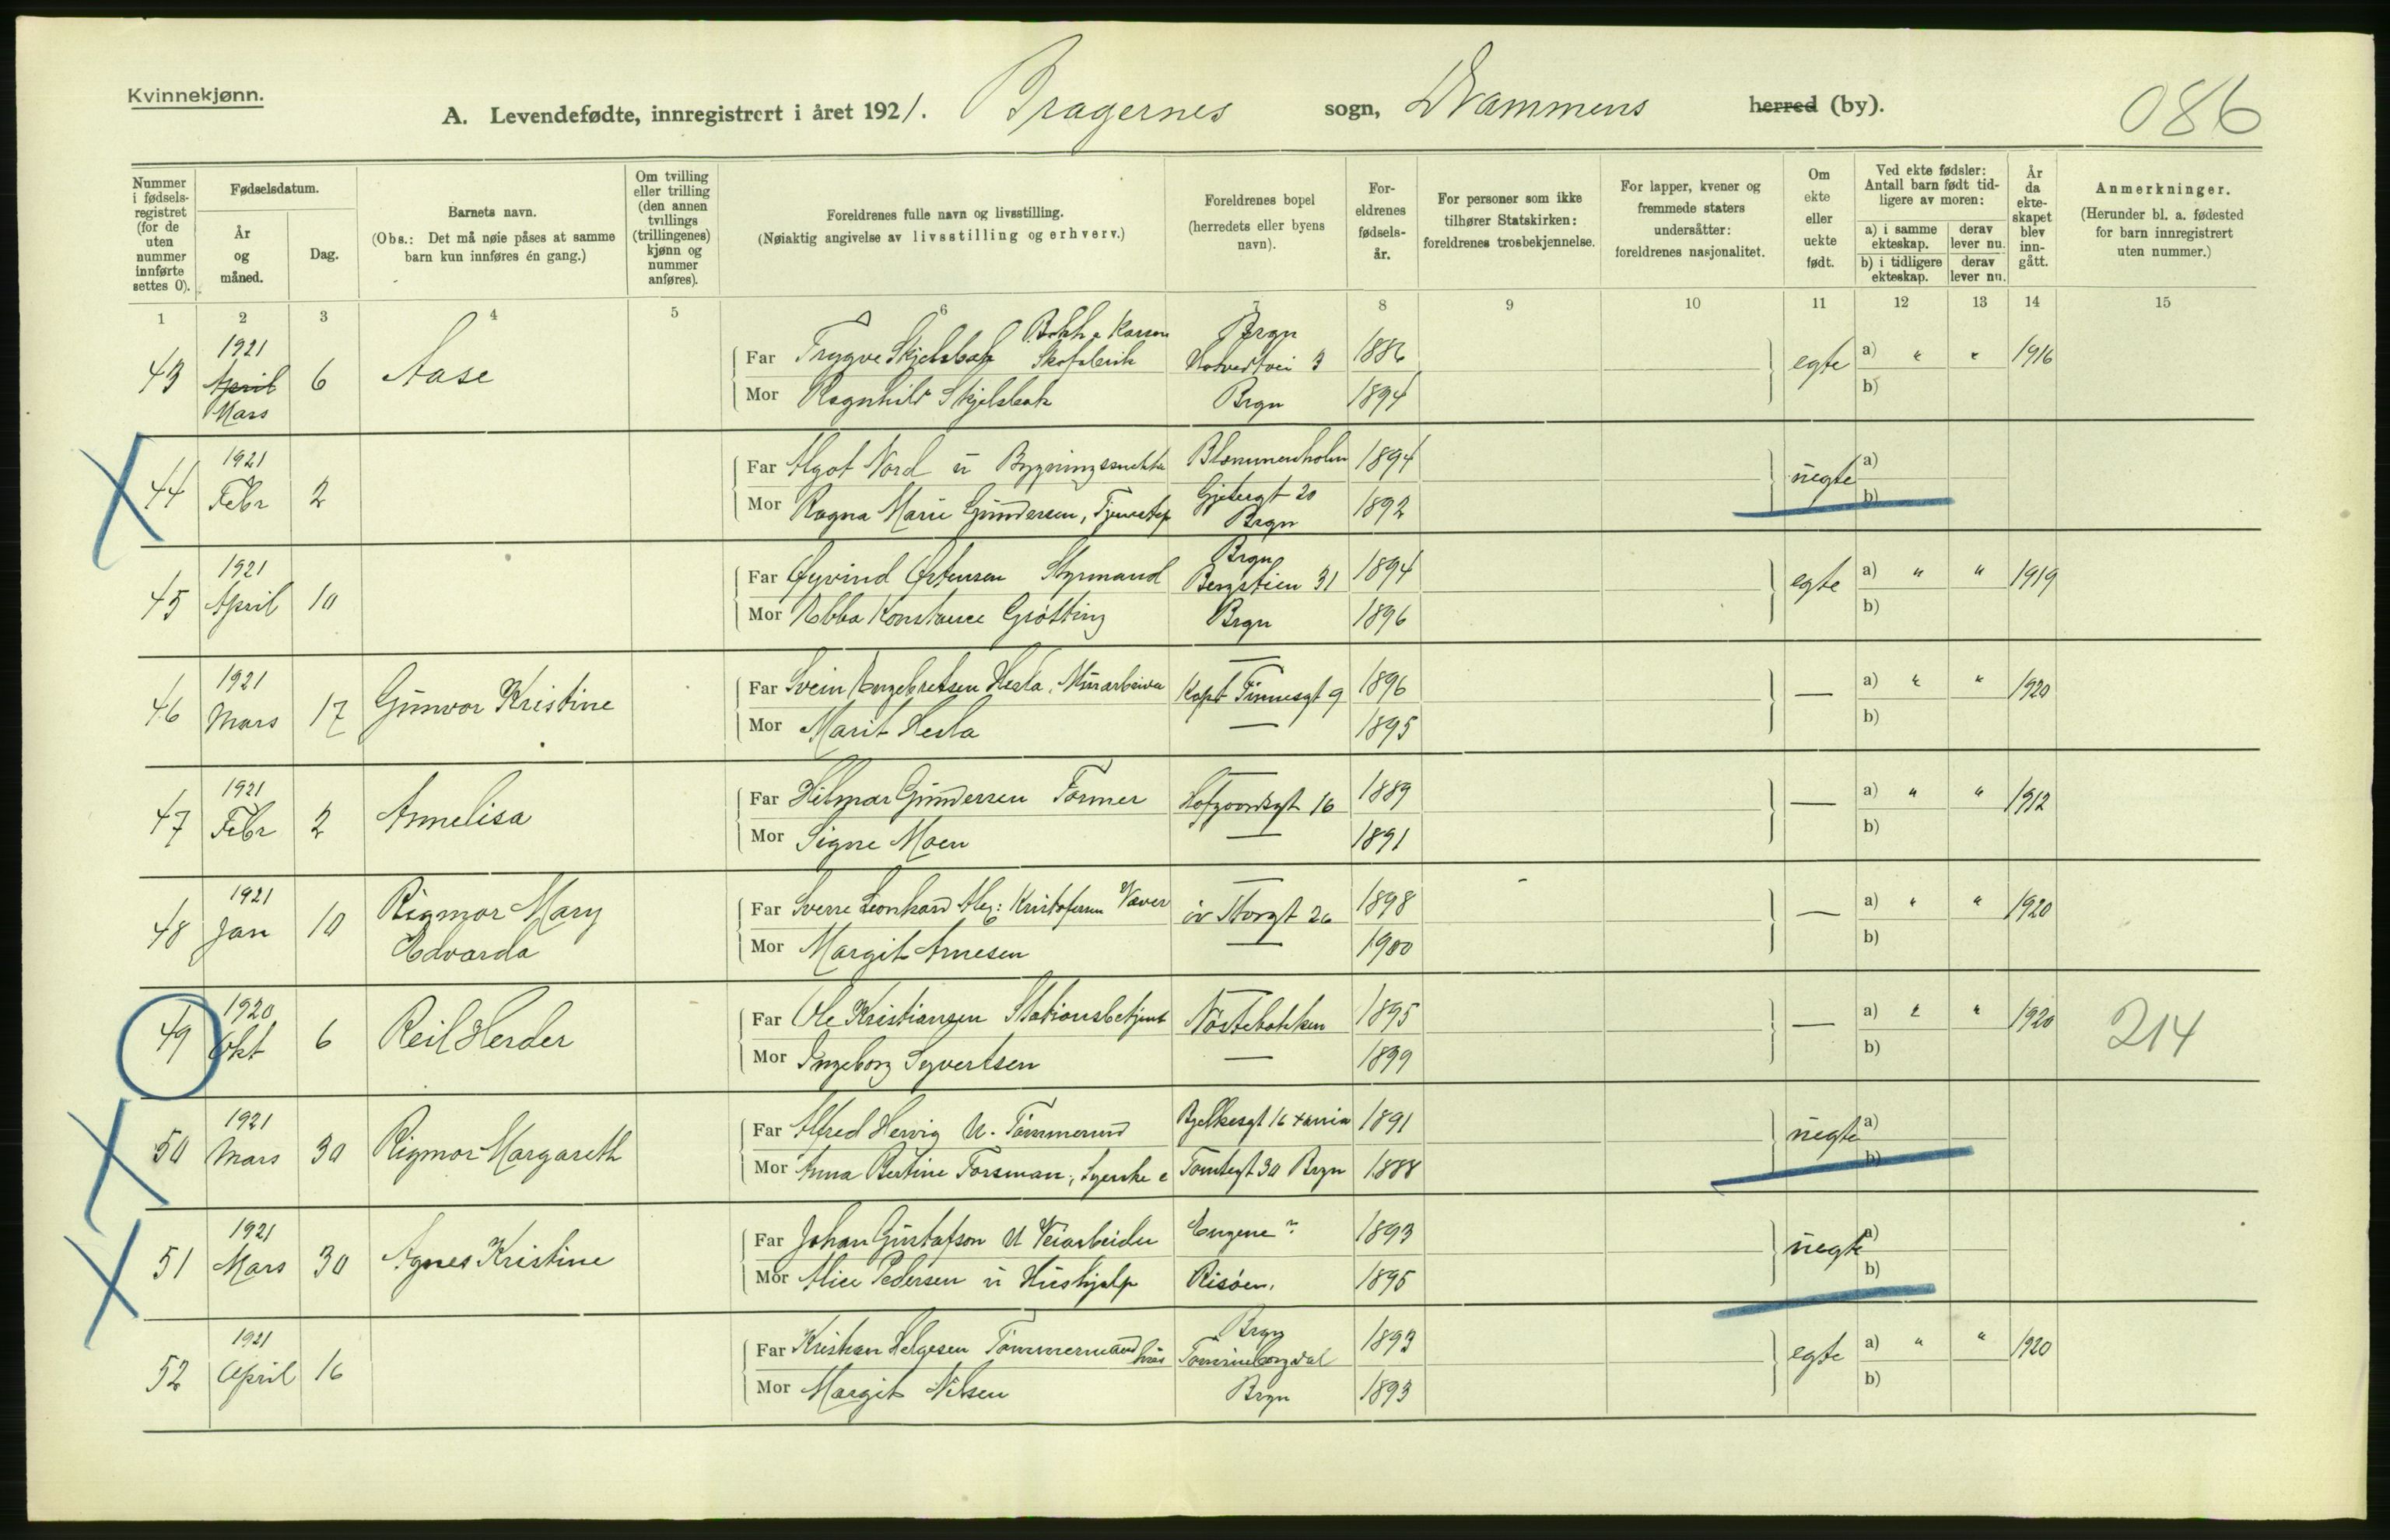 Kvinnekjønn.
A. Levendefødte, innregistrert i året 1921. Bragernes sogn, Drammens herred (by).
086
Nummer i fødsels-registret (for de uten nummer innførte settes 0).
Fødselsdatum.
År og måned.
Dag.
Barnets navn.
(Obs.: Det må nøie påses at samme barn kun innføres én gang.)
Om tvilling eller trilling (den annen tvillings (trillingenes) kjønn og nummer anføres).
Foreldrenes fulle navn og livsstilling.
(Nøiaktig angivelse av livsstilling og erhverv.)
Foreldrenes bopel (herredets eller byens navn).
For-eldrenes fødsels-år.
For personer som ikke tilhører Statskirken: foreldrenes trosbekjennelse.
For lapper, kvener og fremmede staters undersåtter: foreldrenes nasjonalitet.
Om ekte eller uekte født.
Ved ekte fødsler: Antall barn født tid-ligere av moren:
a) i samme ekteskap.
derav lever nu.
b) i tidligere ekteskap.
derav lever nu.
År da ekte-skapet blev inn-gått.
Anmerkninger.
(Herunder bl. a. fødested for barn innregistrert uten nummer.)
1 2 3 4 5 6 7 8 9 10 11 12 13 14 15
43 1921 April Mars 6 Aase
Far Trygve Skjelsbæk Bokh. Skofabrik Brgn 3 1886 egte a) " " 1916
Mor Ragnhild Skjelsbæk Brgn 1894 b)
44 1921 Febr 2
Far Algot Nord u Bygningssnekker Blommenholm 1894 uegte a)
Mor Ragna Marie Gundersen, Gjetergt 20 Brgn 1892 b)
45 1921 April 10
Far Øyvind Østensen Styrmand Brgn Bergstien 31 1894 egte a) " " 1919
Mor Ebba Konstance Grøtting Brgn 1896 b)
46 1921 Mars 17 Gunvor Kristine
Far Svein Engebretsen Hesla, Murarbeider — Kapt Finnesgt 9 1896 — a) " " 1920
Mor Marit Hesla — 1895 b)
47 1921 Febr 2 Annelisa
Far Hilmar Gundersen Former — 16 1889 — a) " " 1912
Mor Signe Moen — 1891 b)
48 1921 Jan 10 Rigmor Mary Edvarda
Far Sverre Leonhard Alex: Kristofersen Væver — øv Storgt 26 1898 — a) " " 1920
Mor Margit Arnesen — 1900 b)
49 1920 Okt 6 Reil Herder
Far Ole Kristiansen Stationsbetjent — Nøstebakken 1895 — a) " " 1920 214
Mor Ingeborg Syvertsen — 1899 b)
50 1921 Mars 30 Rigmor Margareth
Far Alfred Hervig U. Tømmermd Bjelkesgt 16 1891 uegte a)
Mor Anna Bertine Forsman, Tomtegt 30 Brgn 1888 b)
51 1921 Mars 30 Agnes Kristine
Far Johan Gustafson U Veiarbeider Eugene 1893 uegte a)
Mor Alice Pedersen u Hushjelp Risøen. 1895 b)
52 1921 April 16
Far Kristian Helgesen Tømmermand Brgn 1893 egte a) " " 1920
Mor Margit Nilsen Brgn 1893 b)